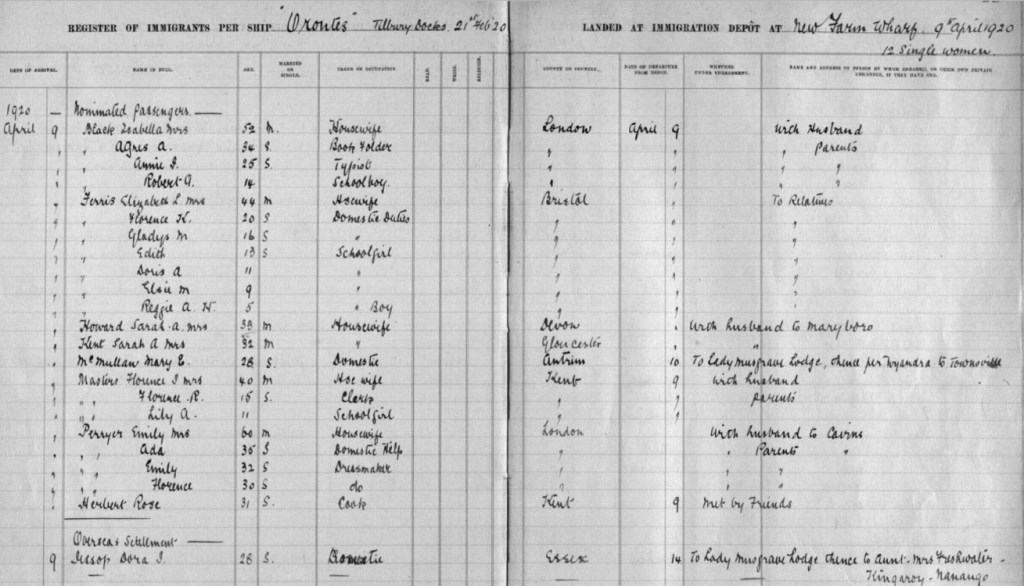 REGISTER OF IMMIGRANTS PER SHIP "Orontes" Tilbury Docks. 21st Feb '20 LANDED AT IMMIGRATION DEPÔT AT New Farm Wharf, 9th April 1920
12 Single women.
DATE OF ARRIVAL. NAME IN FULL. AGE. MARRIED OR SINGLE. TRADE OR OCCUPATION. READ. WRITE. RELIGION. COUNTY OR COUNTRY. DATE OF DEPARTURE FROM DEPOT. WHETHER UNDER ENGAGEMENT. NAME AND ADDRESS OF PERSON BY WHOM ENGAGED, OR THEIR OWN PRIVATE ADDRESS, IF THEY HAVE ONE.
1920 — Nominated Passengers. —
April 9 Black Isabella Mrs 52 M. Housewife London April 9 With Husband
" " Agnes A. 34 S. Book Folder " " Parents
" " Annie I. 25 S. Typist " " " "
" " Robert G. 14 Schoolboy. " " " "
" Ferris Elizabeth L. Mrs 44 m Hsewife Bristol " To Relatives
" " Florence K. 20 S Domestic Duties " " "
" " Gladys M 16 S " " " "
" " Edith 13 S Schoolgirl " " "
" " Doris A 11 " " " "
" " Elsie M 9 " " " "
" " Reggie A. H. 5 " Boy " " "
" Howard Sarah A. Mrs 33 m Housewife Devon " With husband to Maryboro
" Kent Sarah A Mrs 32 m " Gloucester " "
" McMullan Mary E. 28 S. Domestic Antrim 10 To Lady Musgrave Lodge, thence per Wyandra to Townsville
" Masters Florence I Mrs 40 m Hse wife Kent 9 With husband
" " " Florence R. 15 S. Clerk " " parents
" " " Lily A. 11 Schoolgirl " " "
" Perryer Emily Mrs 60 m Housewife London With husband to Cairns
" " " Ada 35 S Domestic Help " " Parents "
" " " Emily 32 S Dressmaker " " " "
" " " Florence 30 S do " " " "
" Herbert Rose 31 S. Cook Kent 9 Met by Friends
Overseas Settlement —
9 Jessop Dora I. 28 S. Domestic Essex 14 To Lady Musgrave Lodge thence to Aunt - Mrs Freshwater -
Kingaroy - Nanango